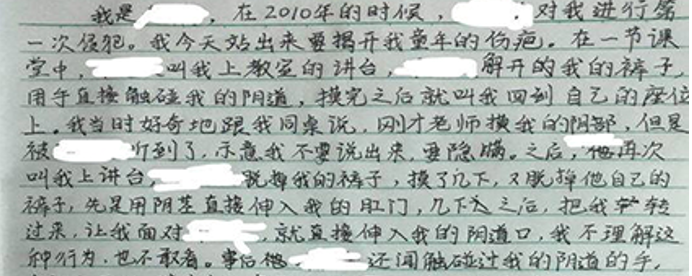 我是 ，在2010年的时候， 对我进行第
一次侵犯。我今天站出来要揭开我童年的伤疤。在一节课
堂中， 叫我上教室的讲台， 解开的我的裤子，
用手直接触碰我的阴道，摸完之后就叫我回到自己的座位
上。我当时好奇地跟我同桌说，刚才老师摸我的阴部，但是
被 听到了，示意我不要说出来，要隐瞒。之后，他再次
叫我上讲台， 脱掉我的裤子，摸了几下，又脱掉他自己的
裤子，先是用阴茎直接伸入我的肛门，几下之后，把我转
过来，让我面对 ，就直接伸入我的阴道口，我不理解这
种行为，也不敢看。事后他 还闻触碰过我的阴道的手，